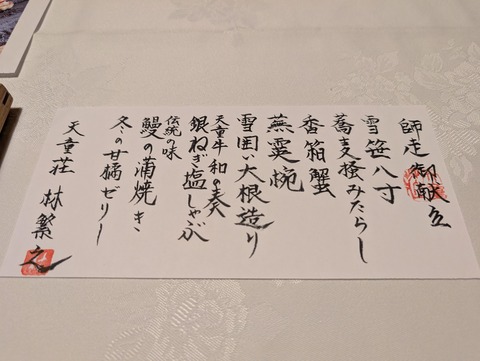 師走御献立
雪笹八寸
蕎麦掻みたらし
香箱蟹
蕪霙椀
雪囲い大根造り
天童牛 和の奏
銀ねぎ塩しゃぶ
伝統の味
鰻の蒲焼き
冬の甘橘ゼリー
天童荘 林繁之